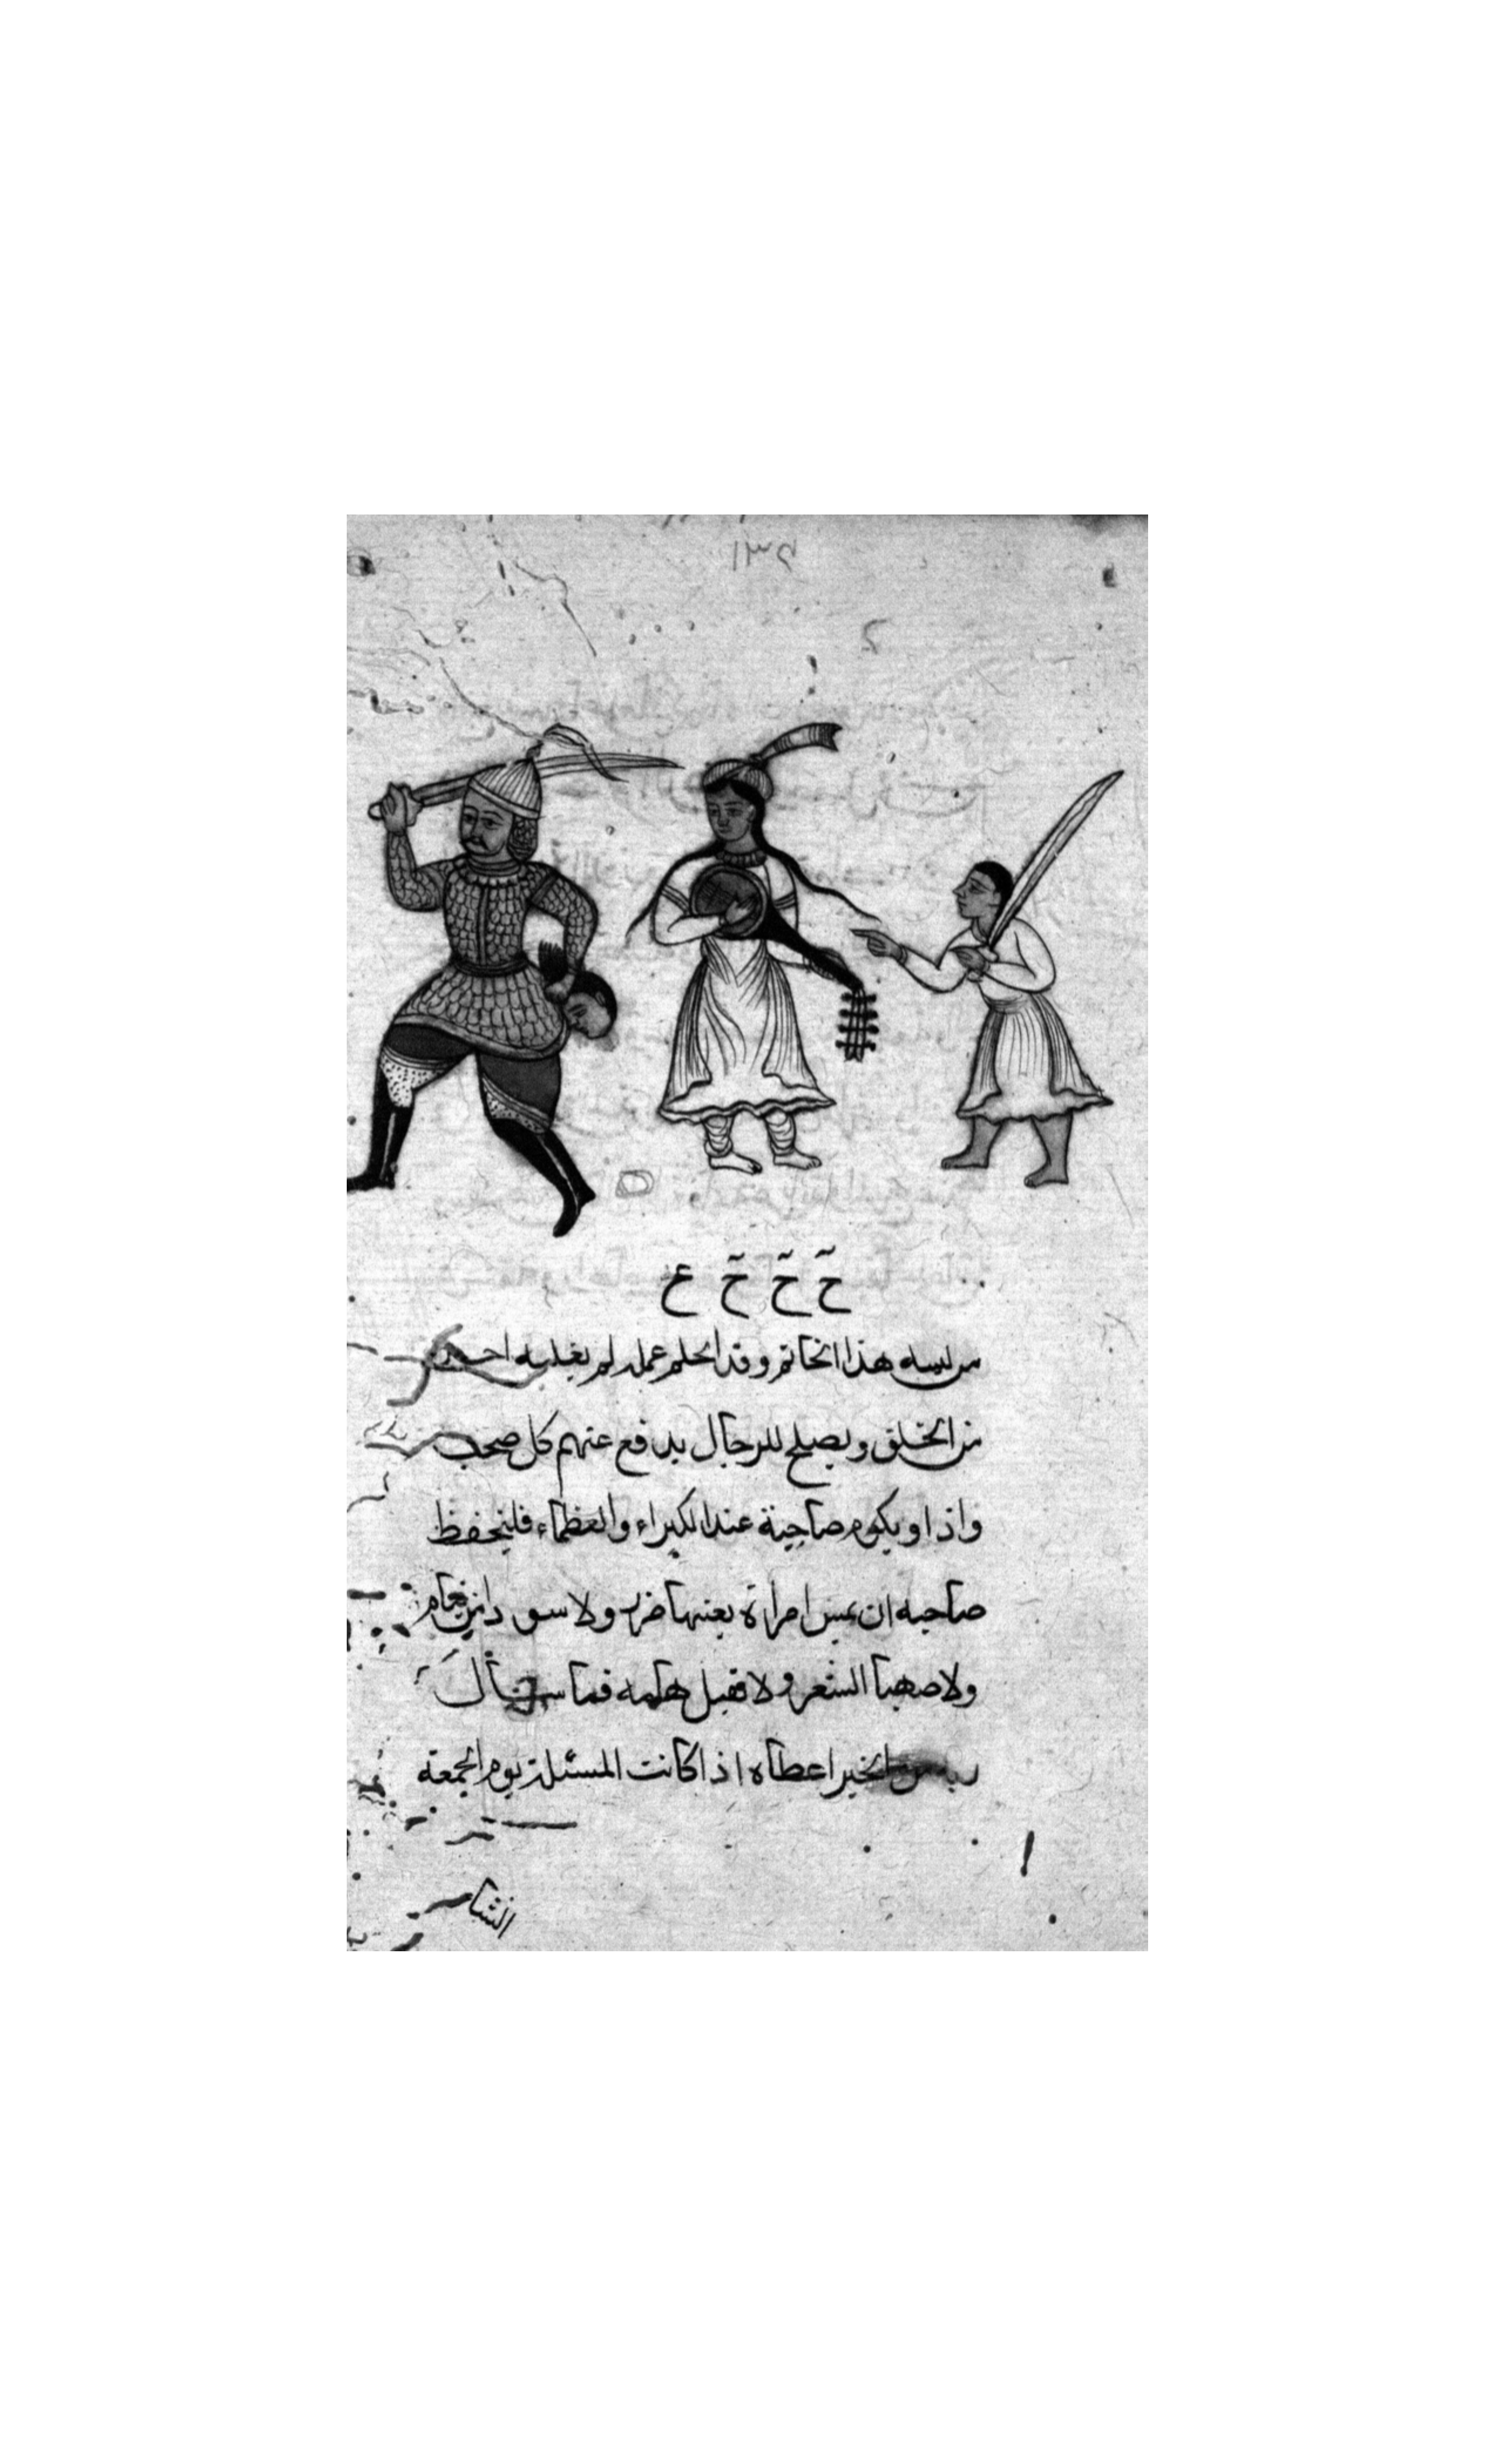 حّ حّ حّ ع
من لبسه هذا الخاتم وقد احلم عمله لم يغلبه احد
من الخلق ويصلح للرجال يدفع عنهم كل صحب
واذا ويكوم صاحبة عند الكبراء والعظماء فليتحفظ
صاحبه ان يمس امراة بعينها ضرر ولا سو
ولا صهبا الشعر ولا فما سأل
من الخير اعطاه اذا كانت المسئلة يوم الجمعة
الشا